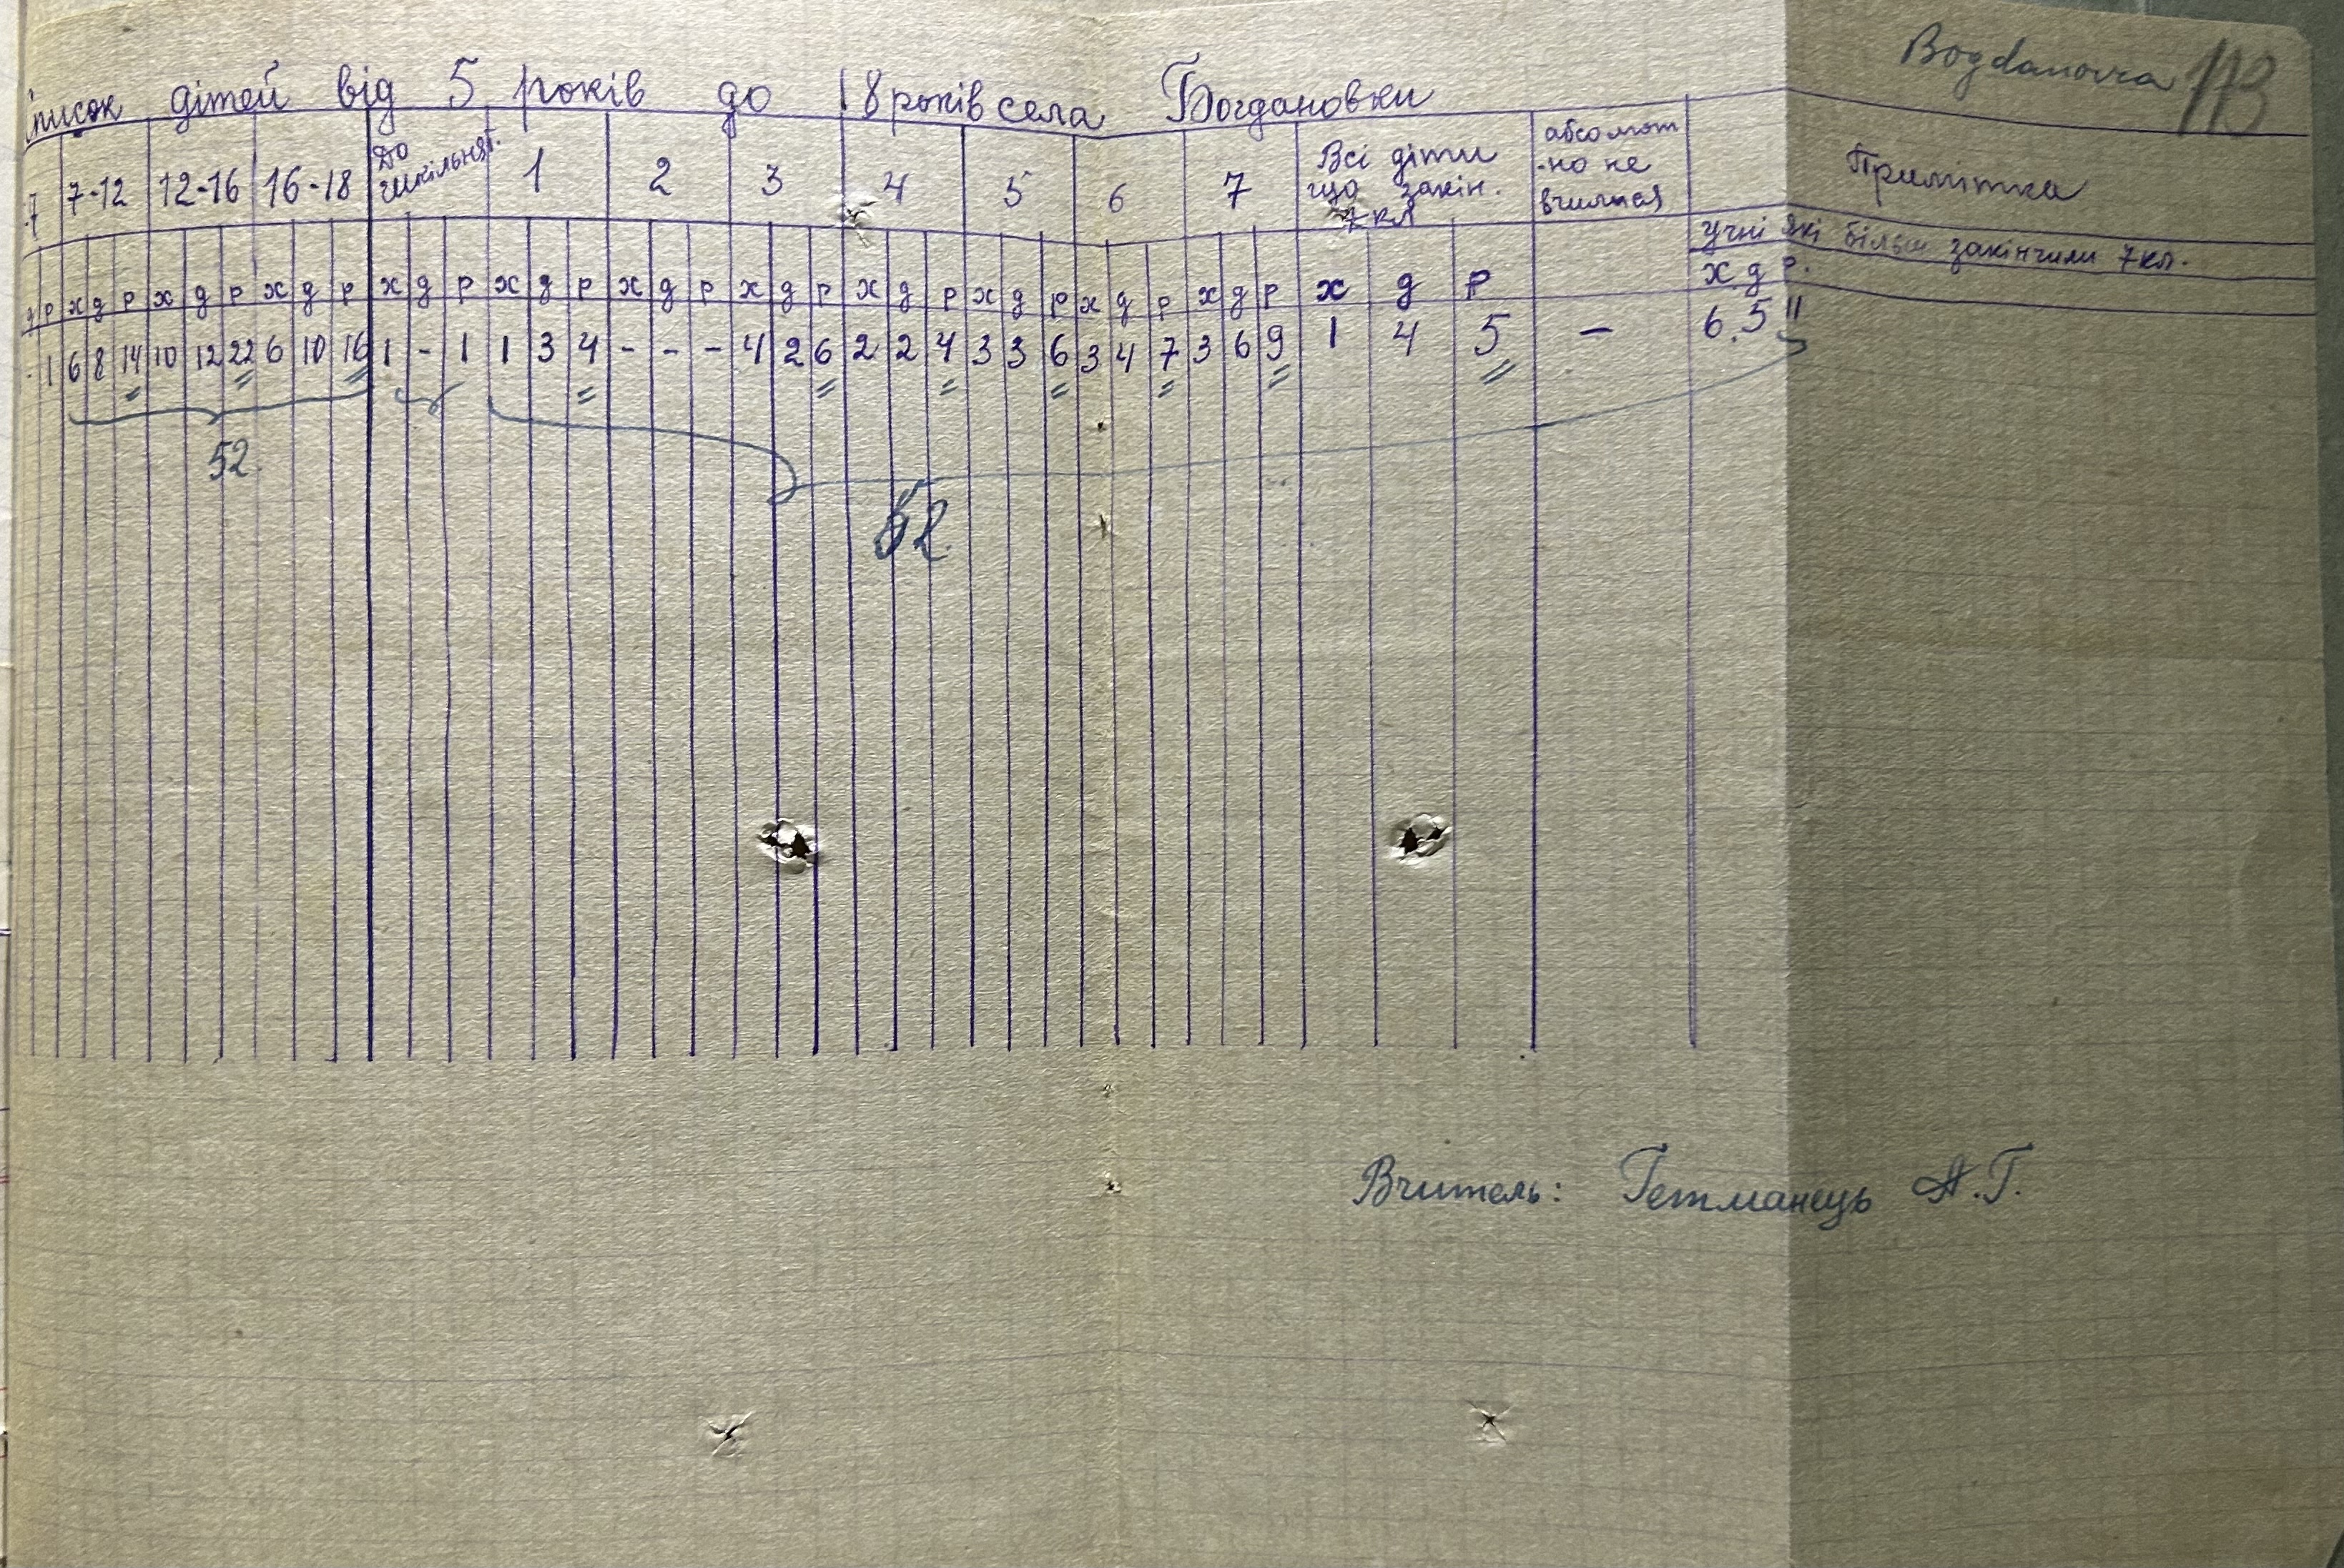 Bogdanovca 173
список дітей від 5 років до 18 років села Богдановки
7 7-12 12-16 16-18 До шкільнят. 1 2 3 4 5 6 7 Всі діти що закін. 7 кл абсолют-но не вчился Примітка
учні які більш закінчили 7 кл.
д р х д р х д р х д р х д р х д р х д р х д р х д р х д р х д р х д р х д р х д р.
- 1 6 8 14 10 12 22 6 10 16 1 - 1 1 3 4 - - - 4 2 6 2 2 4 3 3 6 3 4 7 3 6 9 1 4 5 - 6. 5 11
52
52
Вчитель: Гетманець А.Г.